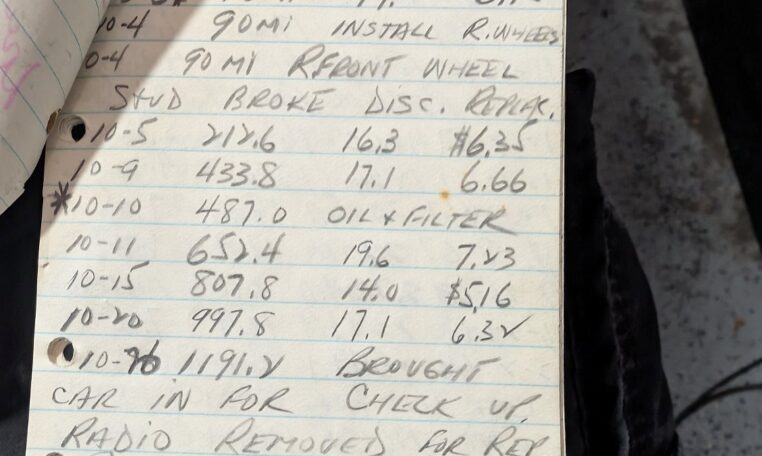 10-4 90MI INSTALL R.WHEELS
0-4 90MI RFRONT WHEEL
STUD BROKE DISC. REPLAC.
10-5 212.6 16.3 $6.35
10-9 433.8 17.1 6.66
*10-10 487.0 OIL & FILTER
10-11 652.4 19.6 7.23
10-15 807.8 14.0 $5.16
10-20 997.8 17.1 6.32
10-26 1191.2 BROUGHT
CAR IN FOR CHECK UP.
RADIO REMOVED FOR REP